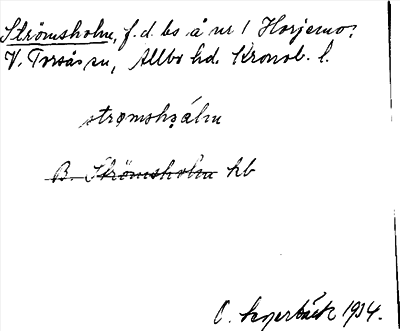 Strömsholm, f.d. bs å nr 1 Horjemo,
V. Torsås sn, Allbo hd. Kronob. l.
strømshɔ́lm
B. Strömsholm kb
O. 1934.